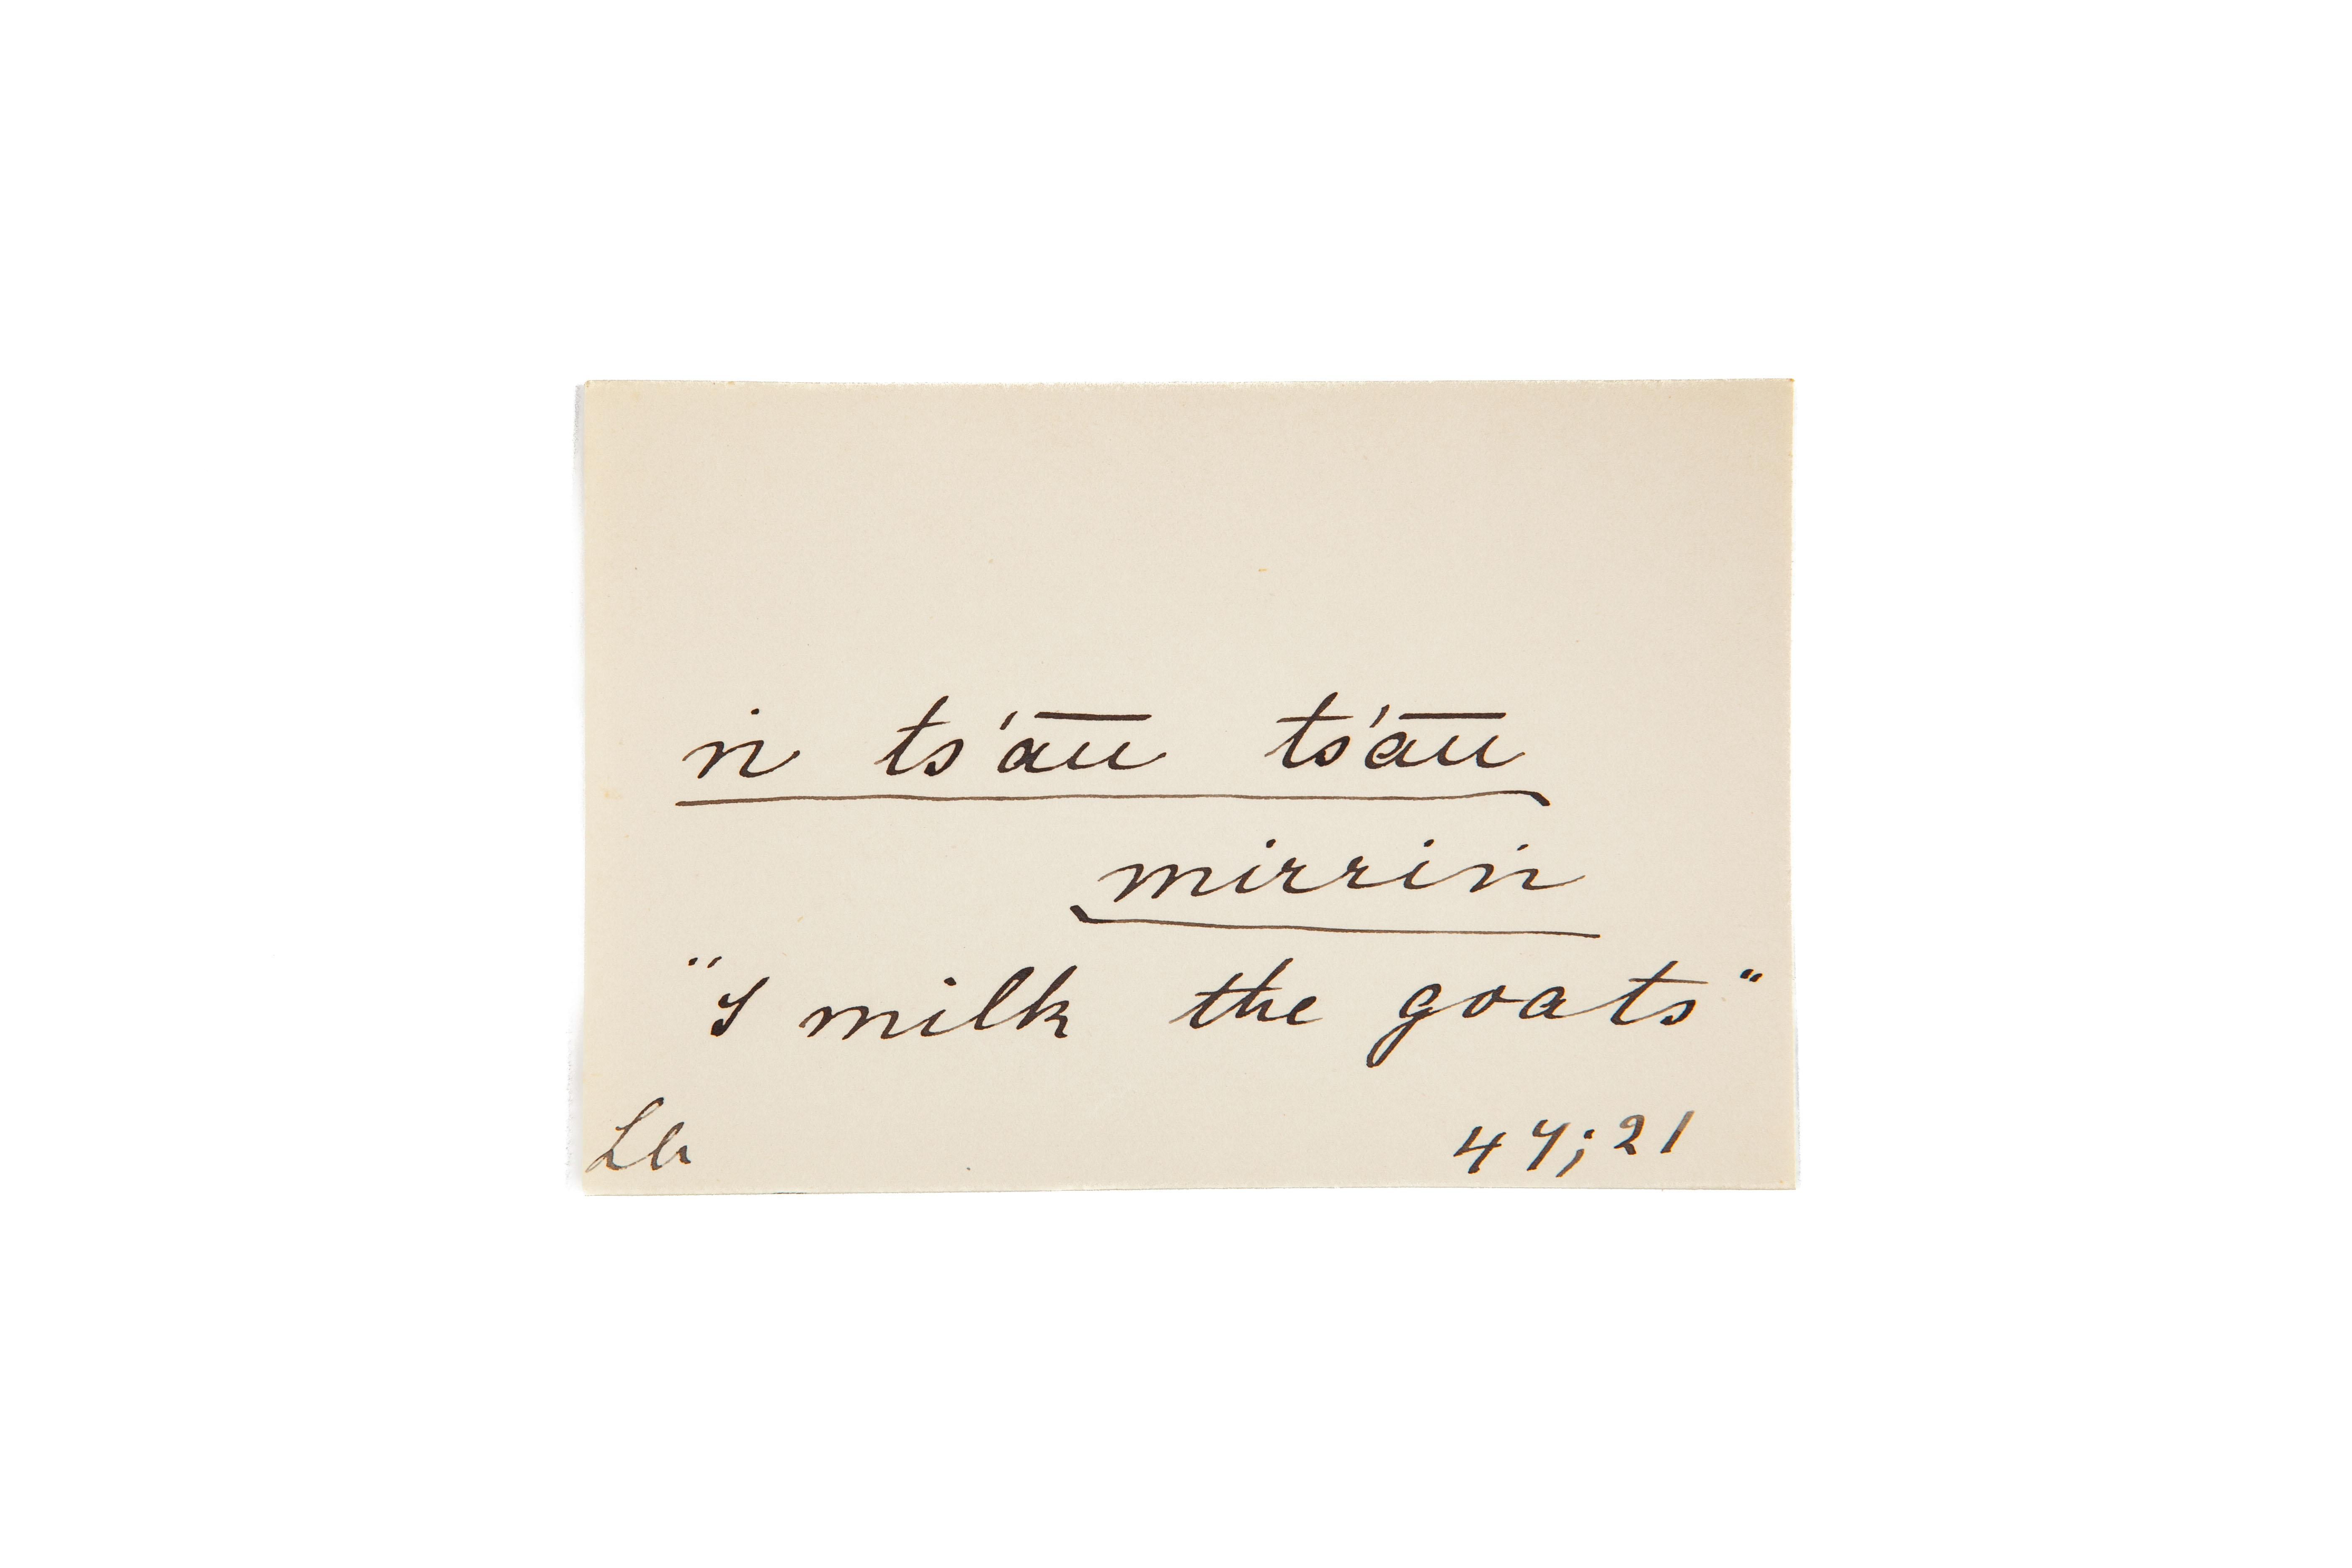 ṅ ts'a͞u ts'a͞u
mirriṅ
"I milk the goats"
Ll. 47; 21